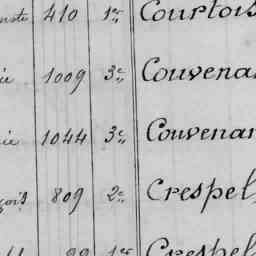 410 1er Courtois
1009 3e Couvena
1044 3e Couvenar
809 2e Crespel
99 1er Crespel